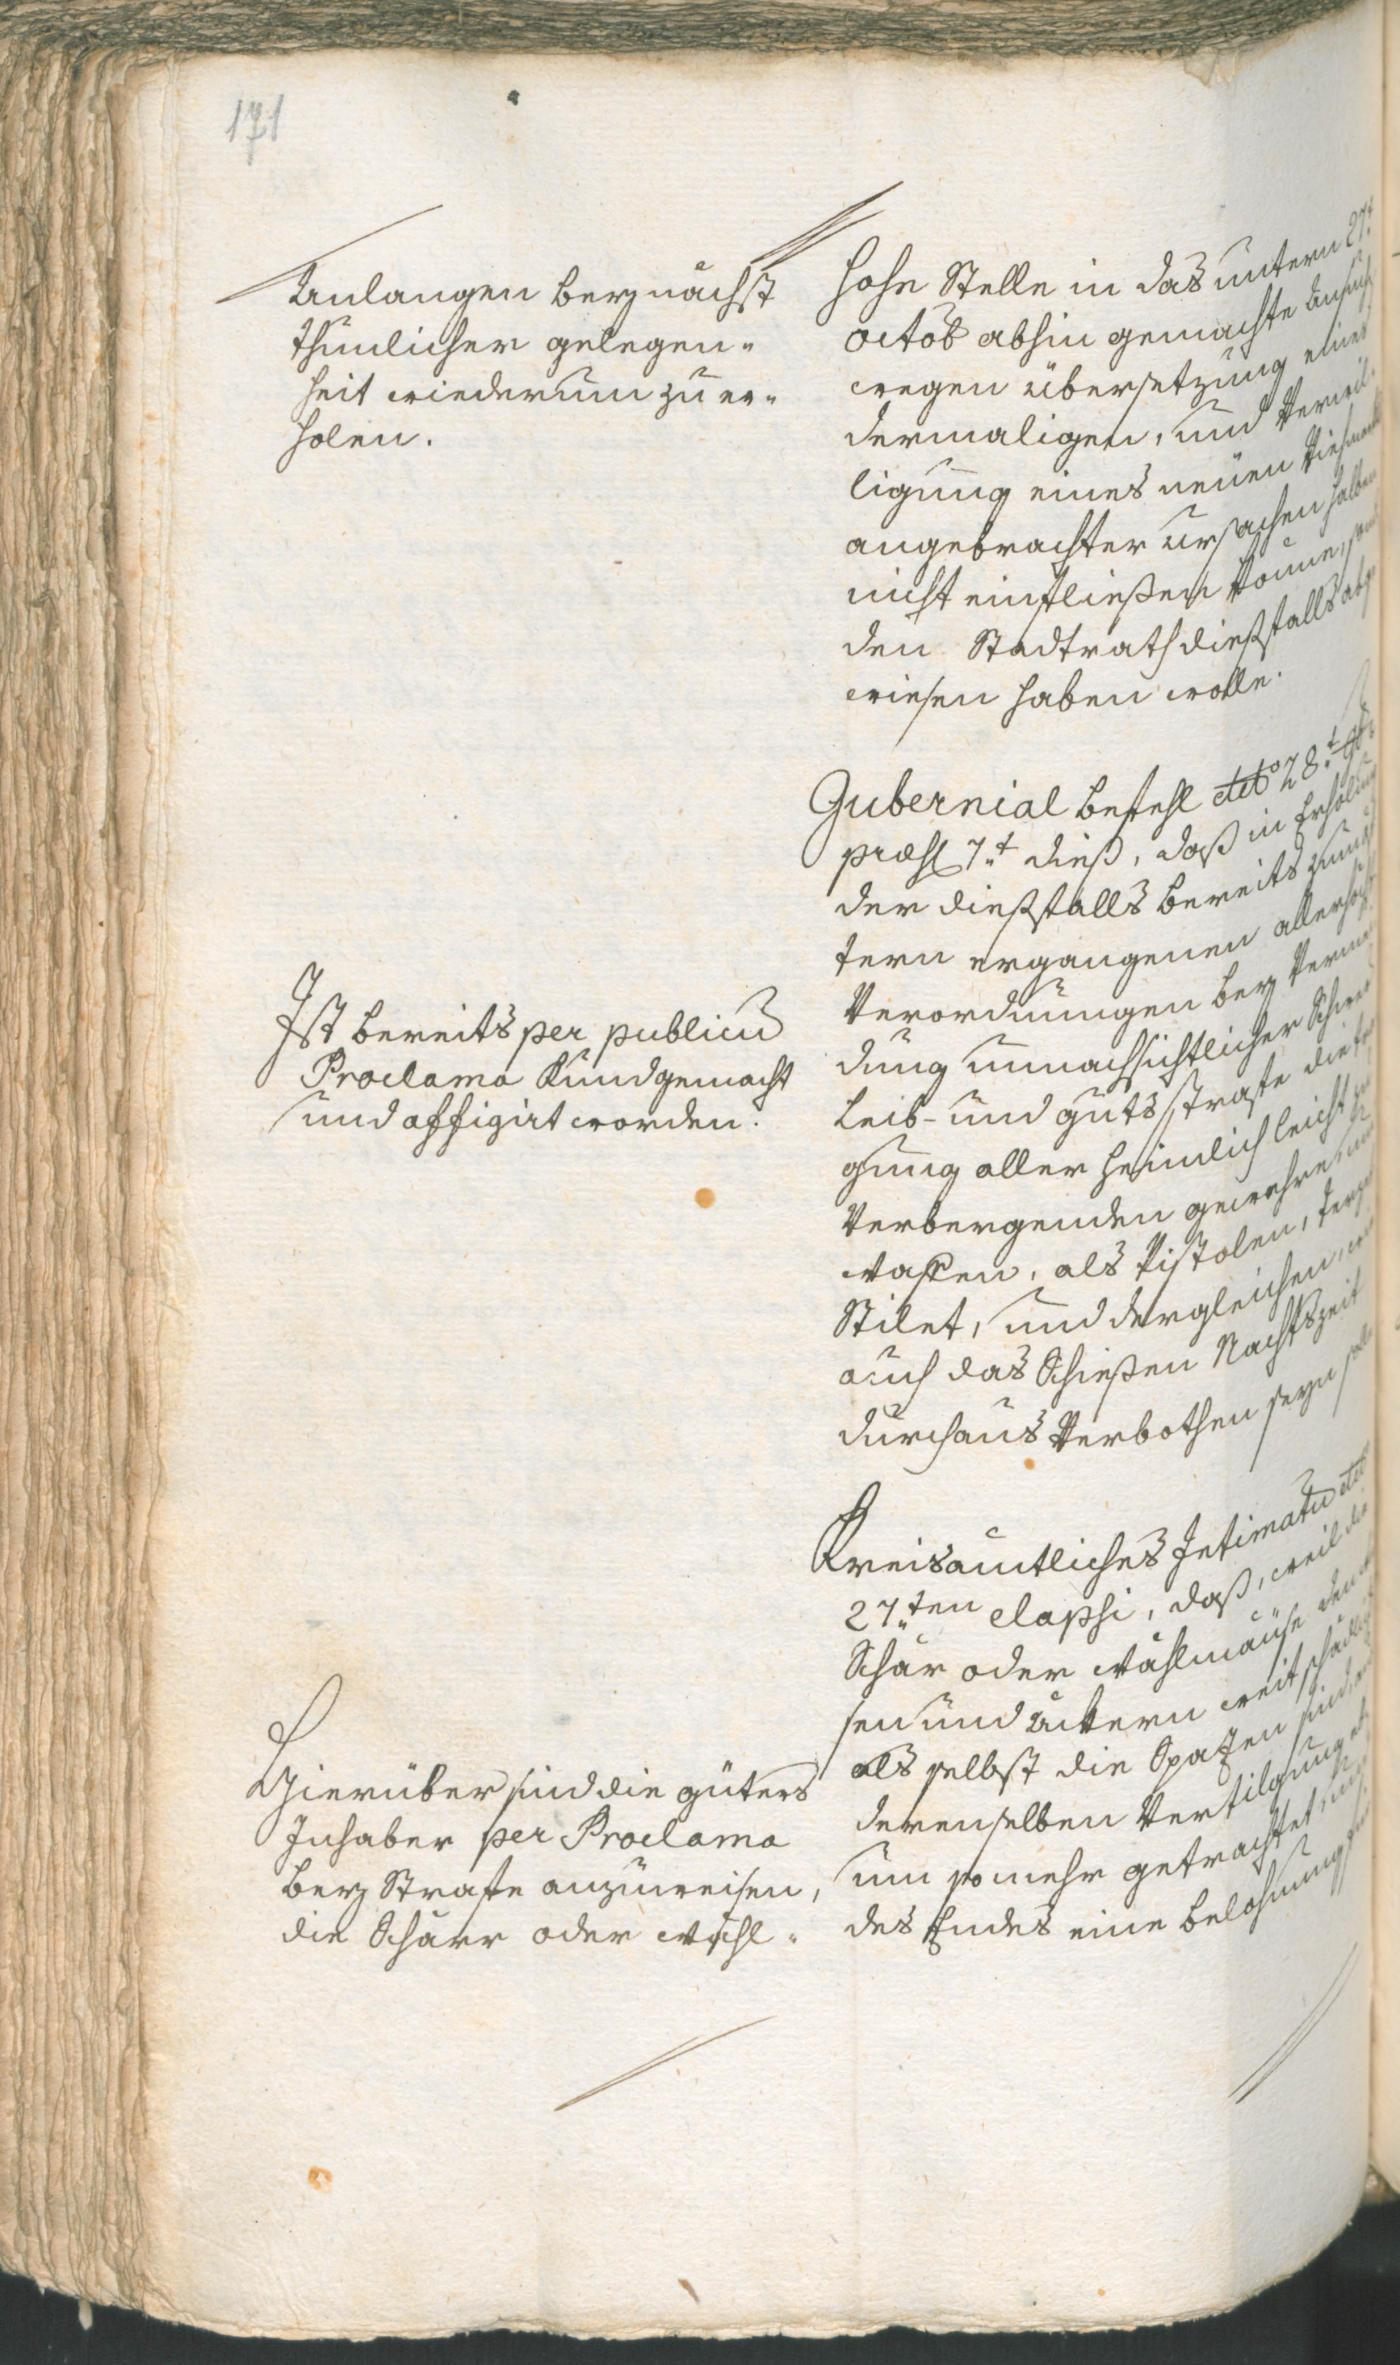 171
Anlangen bey nächst
thunlicher gelegen-
heit wiederum zu er-
holen.
hohe Stelle in das untern 27t
octob abhin gemachte Ansuch
wegen übersetzung eines
dermaligen, und Verwil-
ligung eines neüen Viehmarkt
angebrachter ursachen halben
nicht einfließen könne,
den Stadtrath dießfalls abge
wiesen haben wolle.
Gubernial befehl ddto 28t
præs 7t dieß, daß in Erholung
der dießfalls bereits zum
tern ergangenen allerhöchst
Verordnungen bey Vermei
dung unnachsichtlicher Schwer
Leib- und gutsstrafe die tra
gung aller heimlich leicht zu
Verbergenden gewehre und
waffen, als Pistolen, Terze
Stilet, und dergleichen, wie
auch das Schießen Nachtszeit
durchaus Verbothen seyn solle
Ist bereits per publicu
Proclama Kundgemacht
und affigirt worden.
Kreisämtliches Intimatu ddto
27ten elapsi, daß, weil die
Schär oder Wühlmäuse den
sen und äckern weit schädlich
als selbst die Spatzen sind,
derenselben Vertilgung
um so mehr getrachtet, und
des Endes eine belohnung
Hierüber sind die güters
Inhaber per Proclama
bey Strafe anzuweisen,
die Schärr oder Wühl-